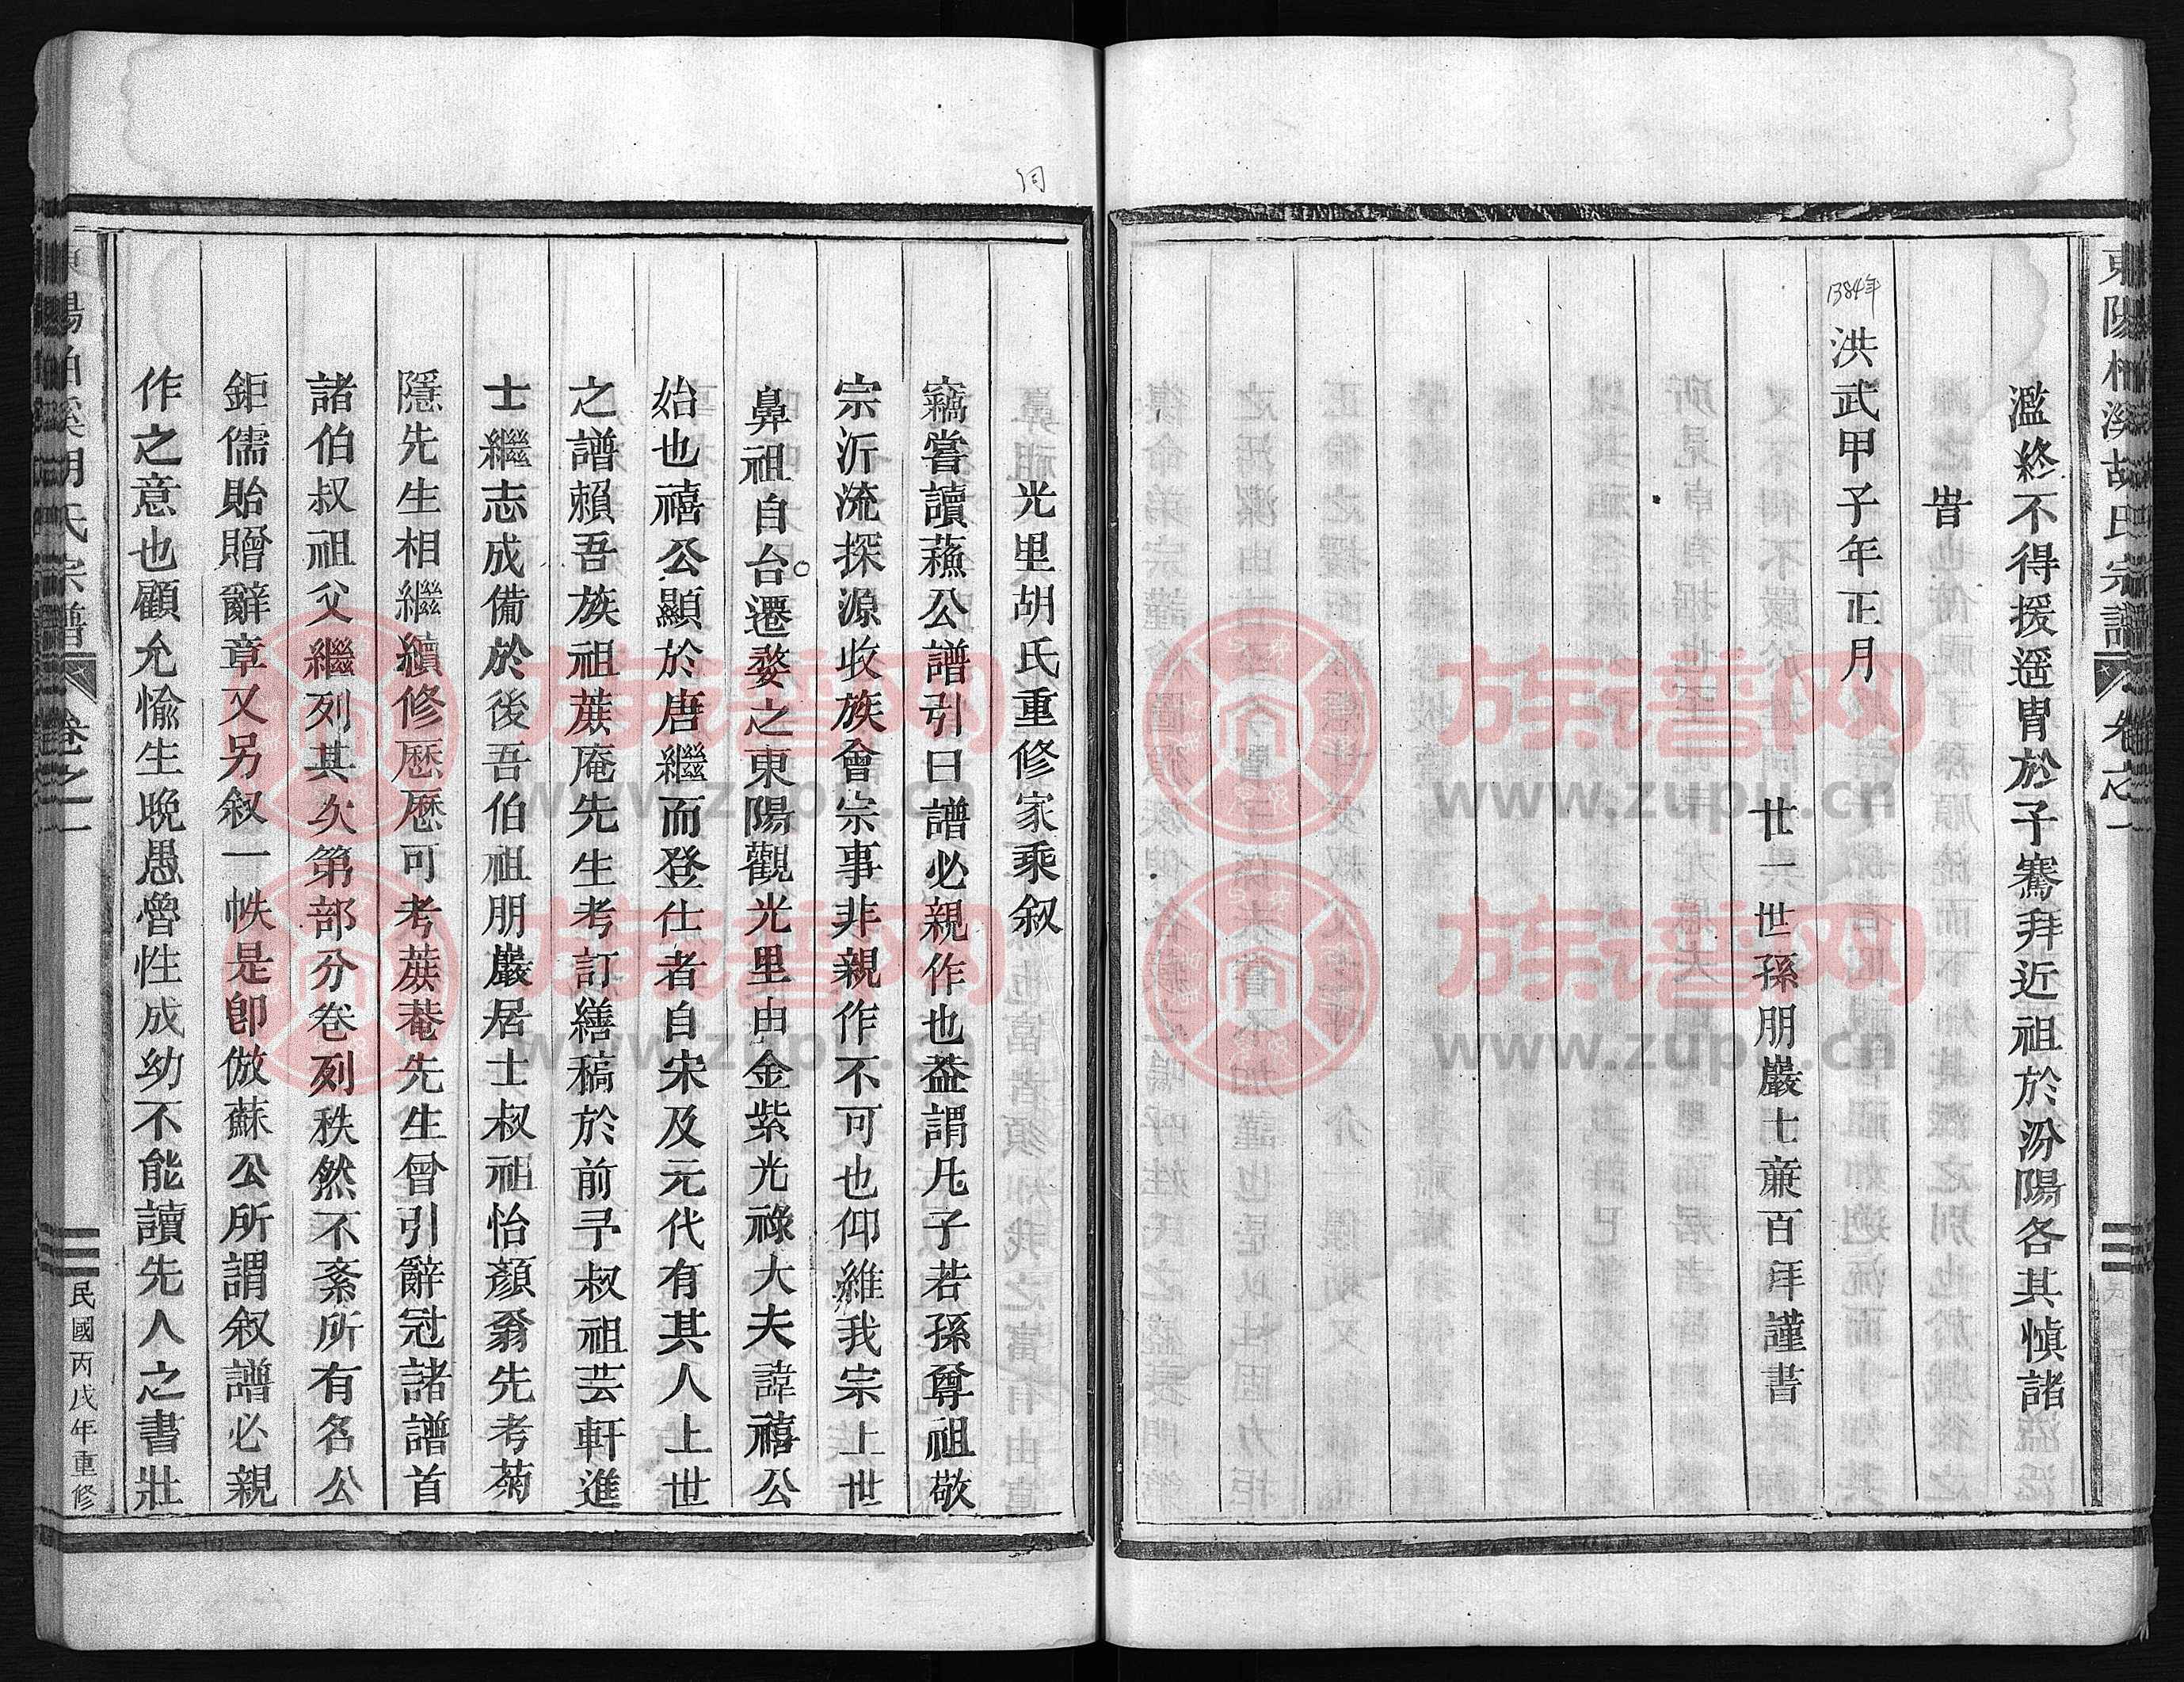 東陽柏溪胡氏宗譜 卷之一
濫終不得援遥胄於子騫拜近祖於汾陽各其慎諸
旹
1384年
洪武甲子年正月
廿二世孫朋巖士亷百拜謹書
光里胡氏重修家乘叙
竊嘗讀蘓公譜引曰譜必親作也葢謂凡子若孫尊祖敬
宗沂流探源收族會宗事非親作不可也仰維我宗上世
鼻祖自台遷婺之東陽觀光里由金紫光祿大夫諱禧公
始也禧公顯於唐繼而登仕者自宋及元代有其人上世
之譜賴吾族祖蔗庵先生考訂繕稿於前予叔祖芸軒進
士繼志成備於後吾伯祖朋巖居士叔祖怡顏翁先考菊
隱先生相繼續修歷歷可考蔗菴先生曾引辭冠諸譜首
諸伯叔祖父繼列其次第部分卷列秩然不紊所有名公
鉅儒貽贈辭章又另叙一帙是卽倣蘇公所謂叙譜必親
作之意也顧允愉生晚愚魯性成幼不能讀先人之書壯
東陽柏溪胡氏宗譜 卷之一 民國丙戌年重修
族谱网
www.zupu.cn
族谱网
www.zupu.cn
族谱网
www.zupu.cn
族谱网
www.zupu.cn